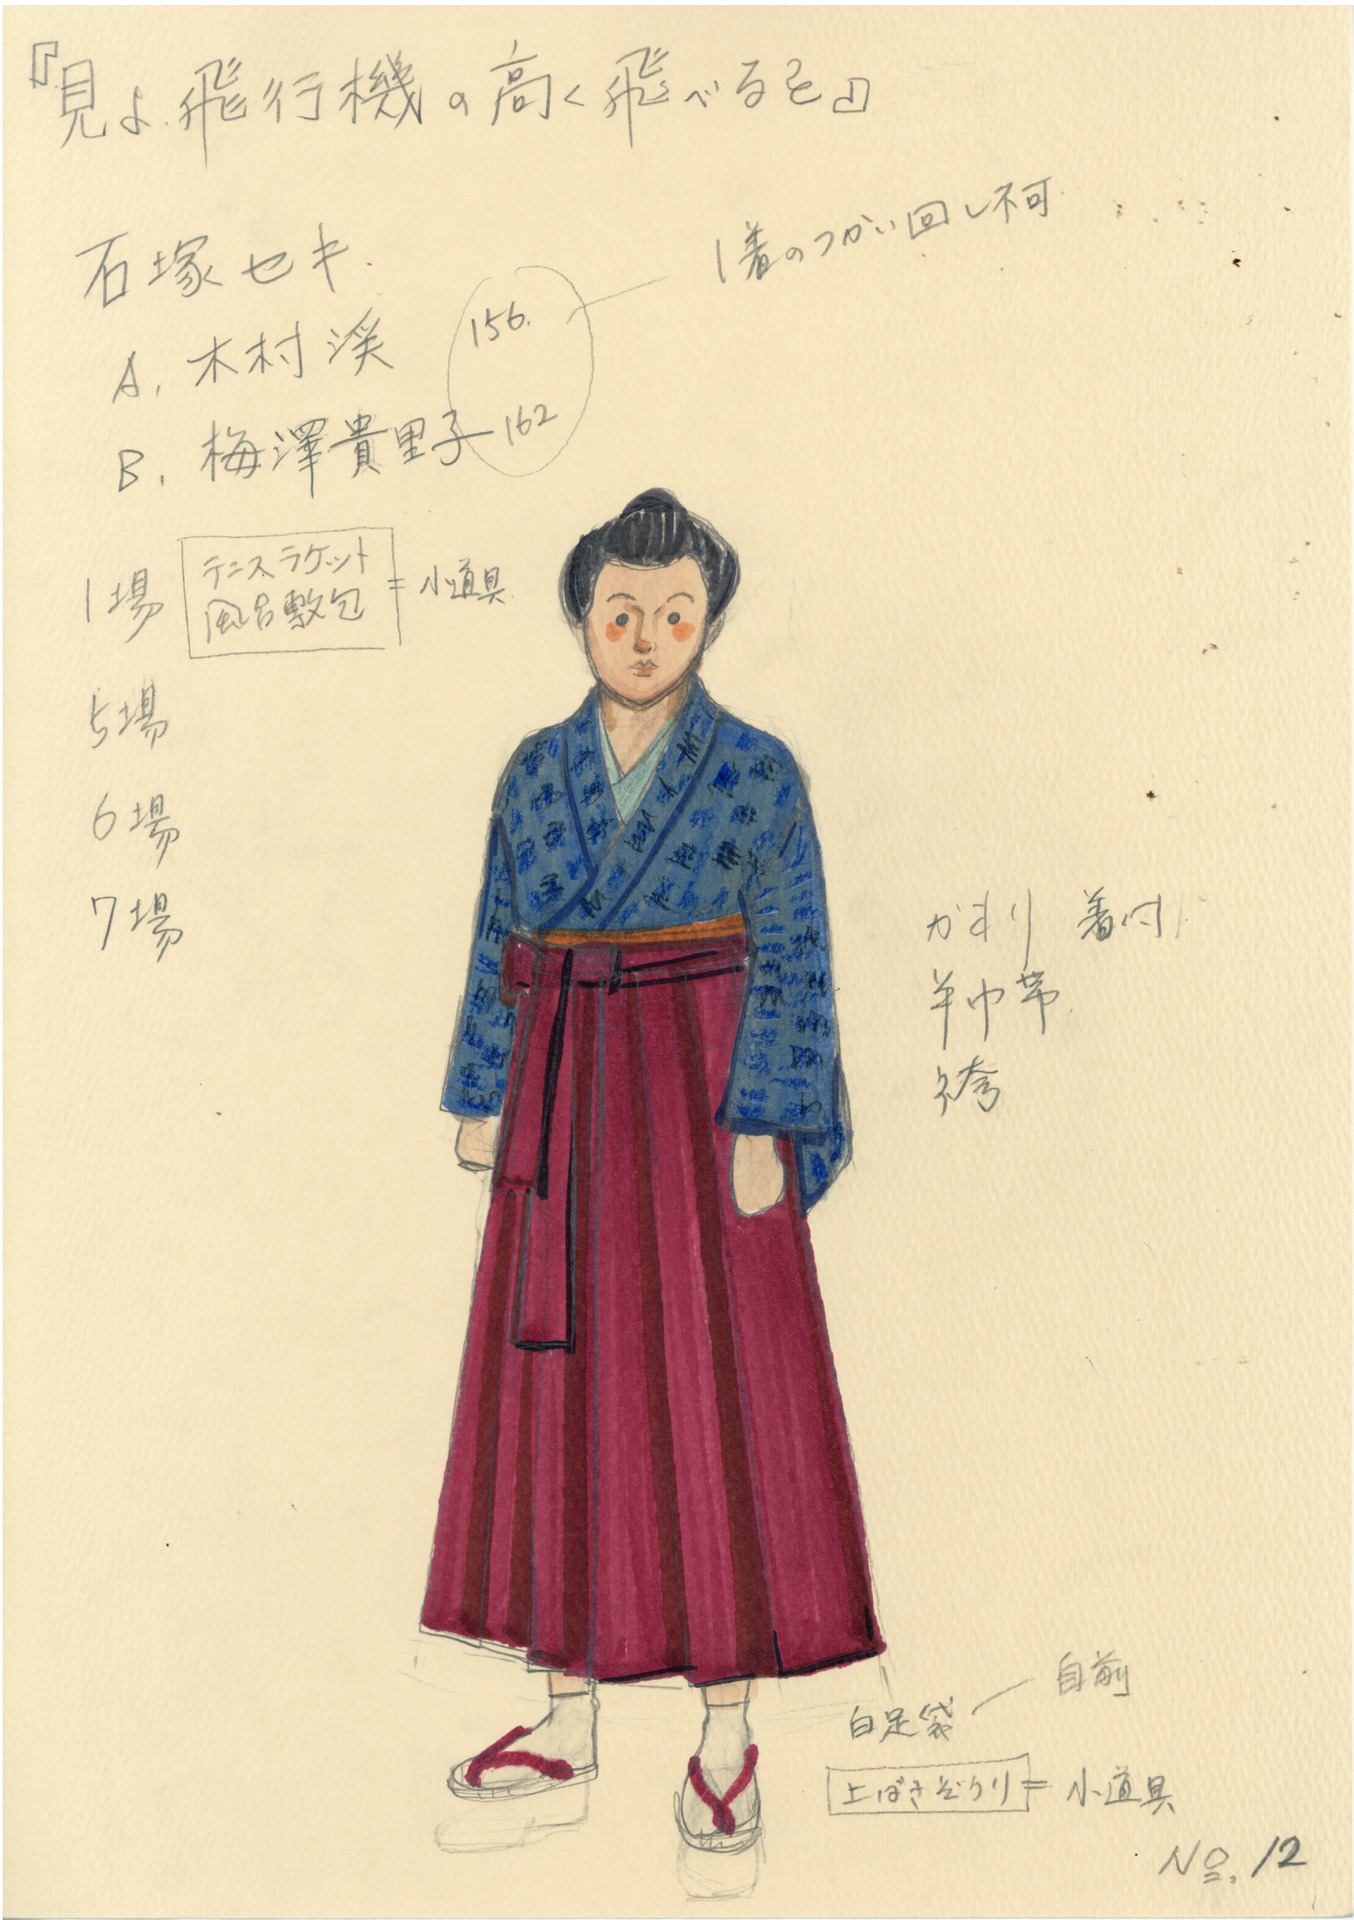 『見よ飛行機の高く飛べるを』
石塚セキ.
1着のつかい回し不可
A. 木村渓 156.
B. 梅澤貴里子 162
1場 テニスラケット
風呂敷包 = 小道具
5場
6場
7場
かすり 着付
半巾帯
袴
白足袋 — 自前
上ばきぞうり = 小道具
No. 12